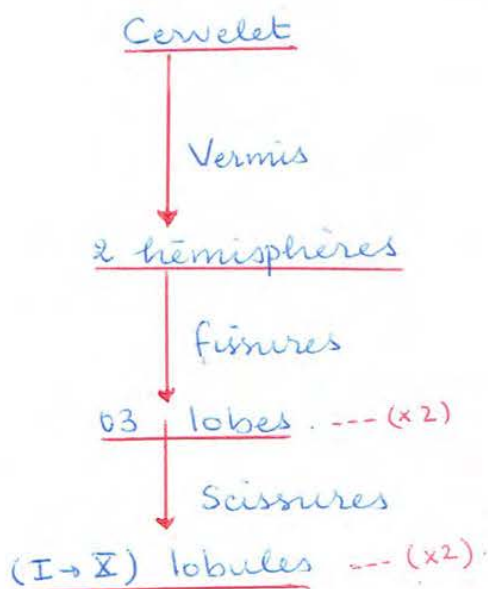 Cervelet
Vermis
2 hémisphères
fissures
03 lobes . --- (x2)
Scissures
(I → X) lobules --- (x2).